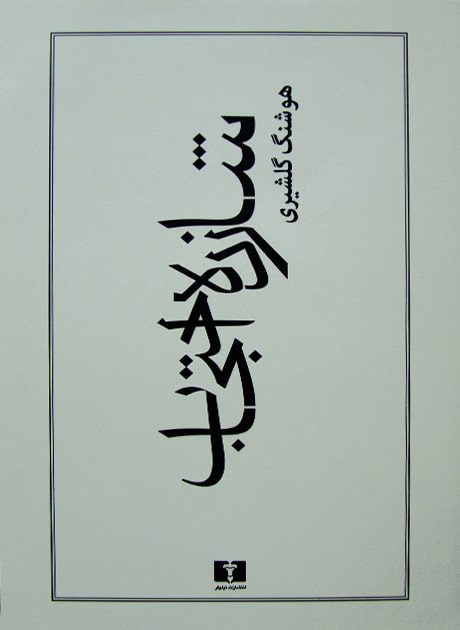 هوشنگ گلشیری
شازده احتجاب
انتشارات نیلوفر